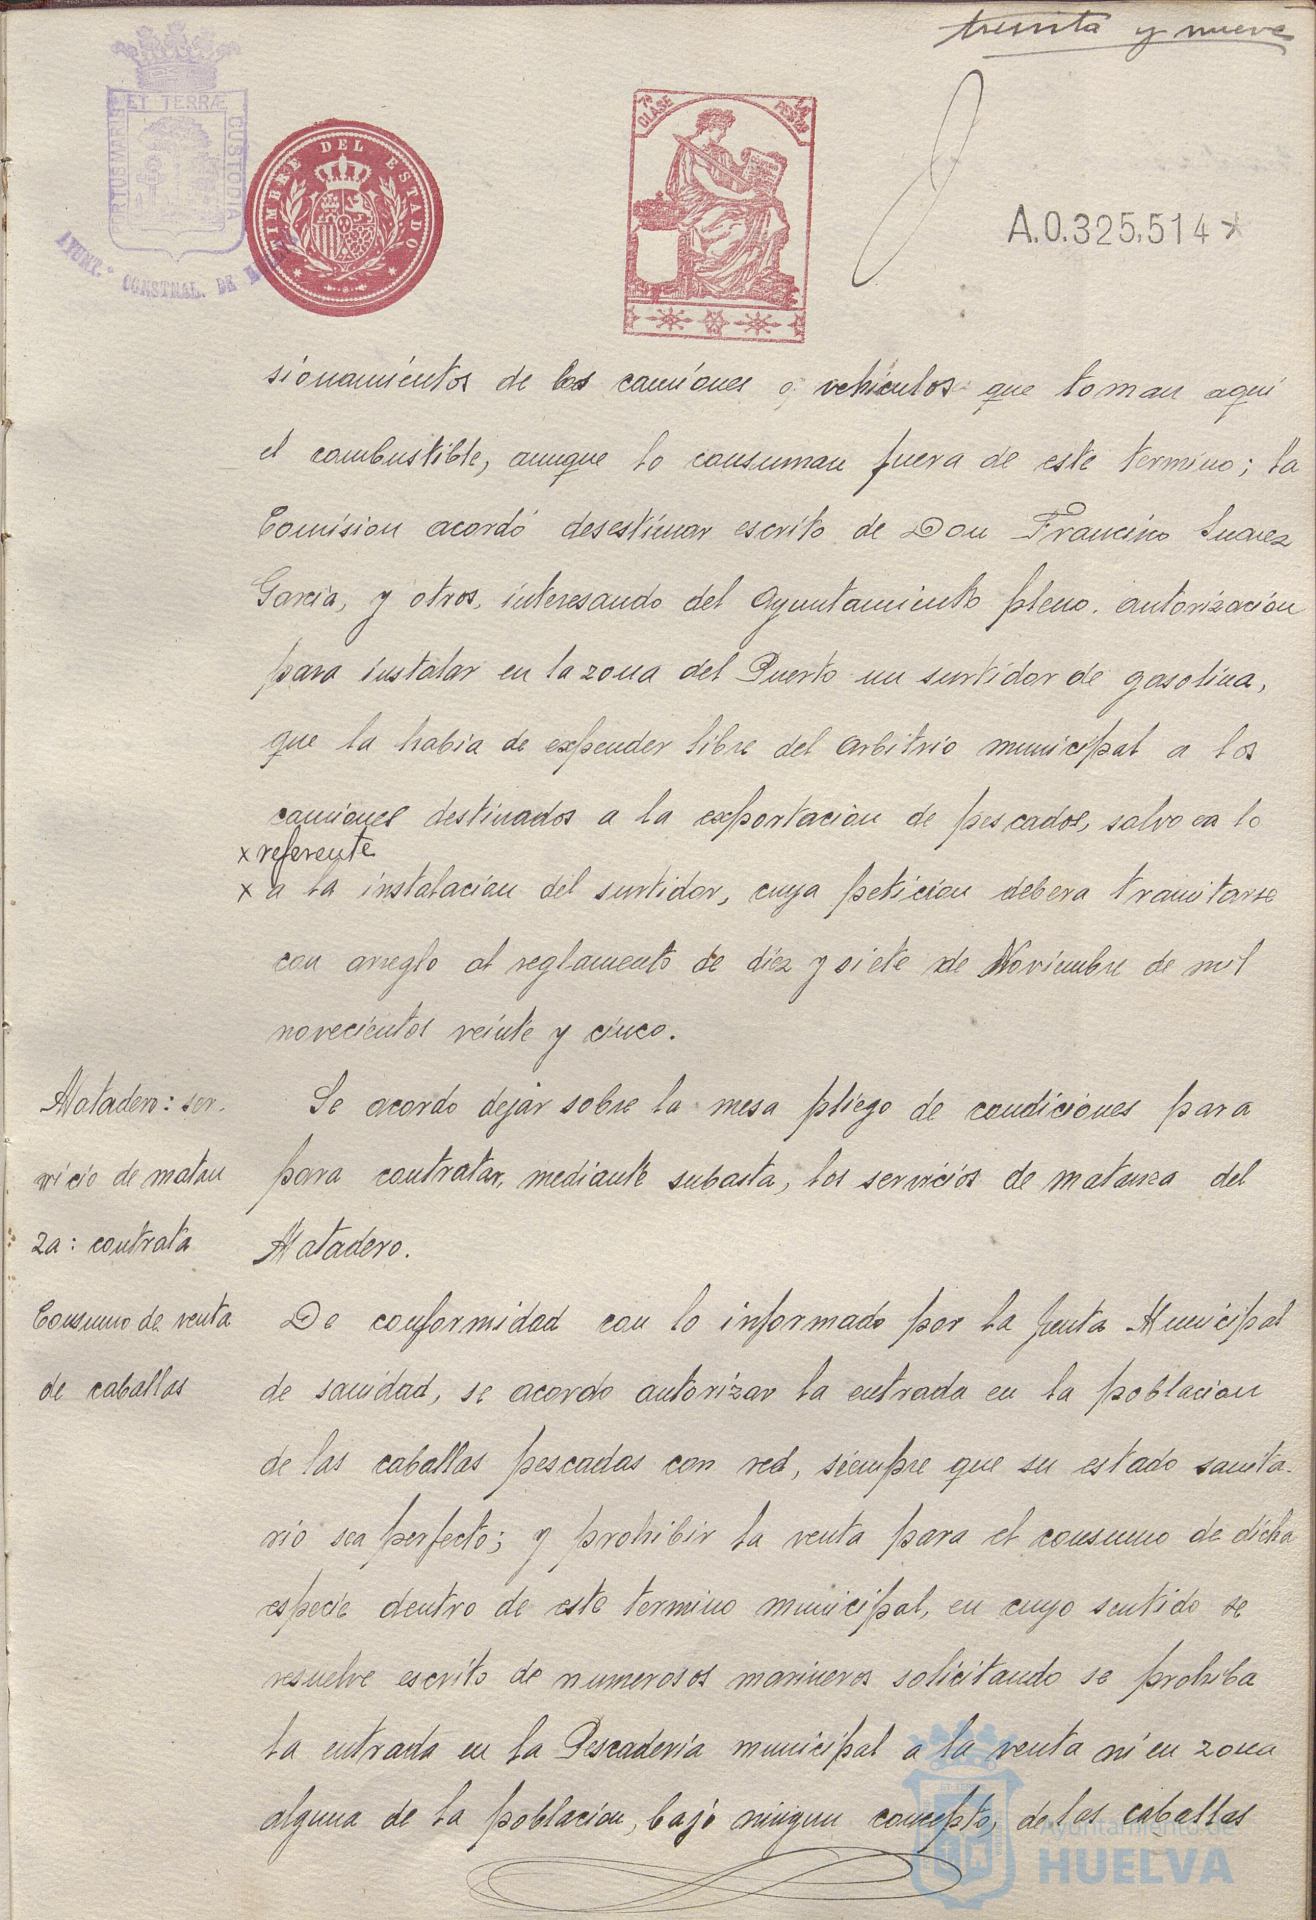 treinta y nueve
PORTUS MARIS ET TERRÆ CUSTODIA
AYUNT.º CONSTNAL. DE HUELVA
TIMBRE DEL ESTADO
7ª CLASE
PESETA
A.0.325,514
sionamientos de los camiones o vehiculos que toman aqui
el combustible, aunque lo consuman fuera de este termino; la
Comision acordó desestimar escrito de Don Francisco Suarez
Garcia, y otros, interesando del Ayuntamiento pleno. autorizacion
para instalar en la zona del Puerto un surtidor de gasolina,
que la habia de expender libre del arbitrio municipal a los
camiones destinados a la exportacion de pescados, salvo en lo
x referente
x a la instalacion del surtidor, cuya peticion debera tramitarse
con arreglo al reglamento de diez y siete de Noviembre de mil
novecientos veinte y cinco.
Matadero: ser-
vicio de matan
za: contrata
Se acordo dejar sobre la mesa pliego de condiciones para
para contratar, mediante subasta, los servicios de matanza del
Matadero.
Consumo de venta
de caballas
De conformidad con lo informado por la Junta Municipal
de sanidad, se acordo autorizar la entrada en la poblacion
de las caballas pescadas con red, siempre que su estado sanita-
rio sea perfecto; y prohibir la venta para el consumo de dicha
especie dentro de este termino municipal, en cuyo sentido se
resuelve escrito de numerosos marineros solicitando se prohiba
la entrada en la Pescaderia municipal a la venta ni en zona
alguna de la poblacion, bajo ningun concepto, de las caballas
Ayuntamiento de
HUELVA